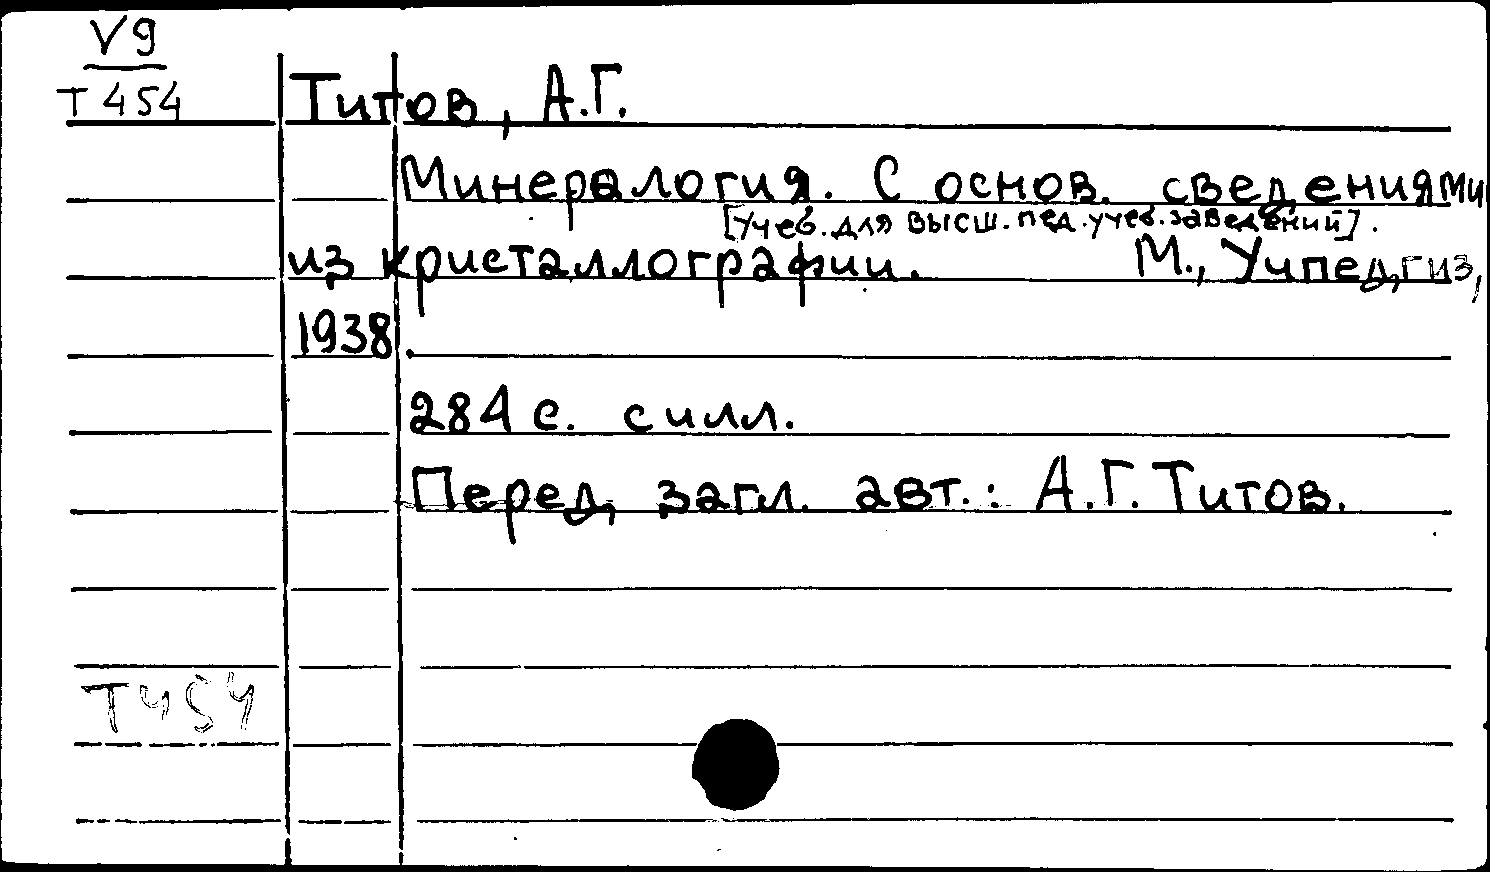 V9
T454
Титов, А.Г.
Минералогия. С основ. сведениями
[Учеб. для высш. пед. учеб. заведений].
из кристаллографии. М., Учпедгиз,
1938.
284 с. с илл.
Перед загл. авт.: А.Г. Титов.
T454